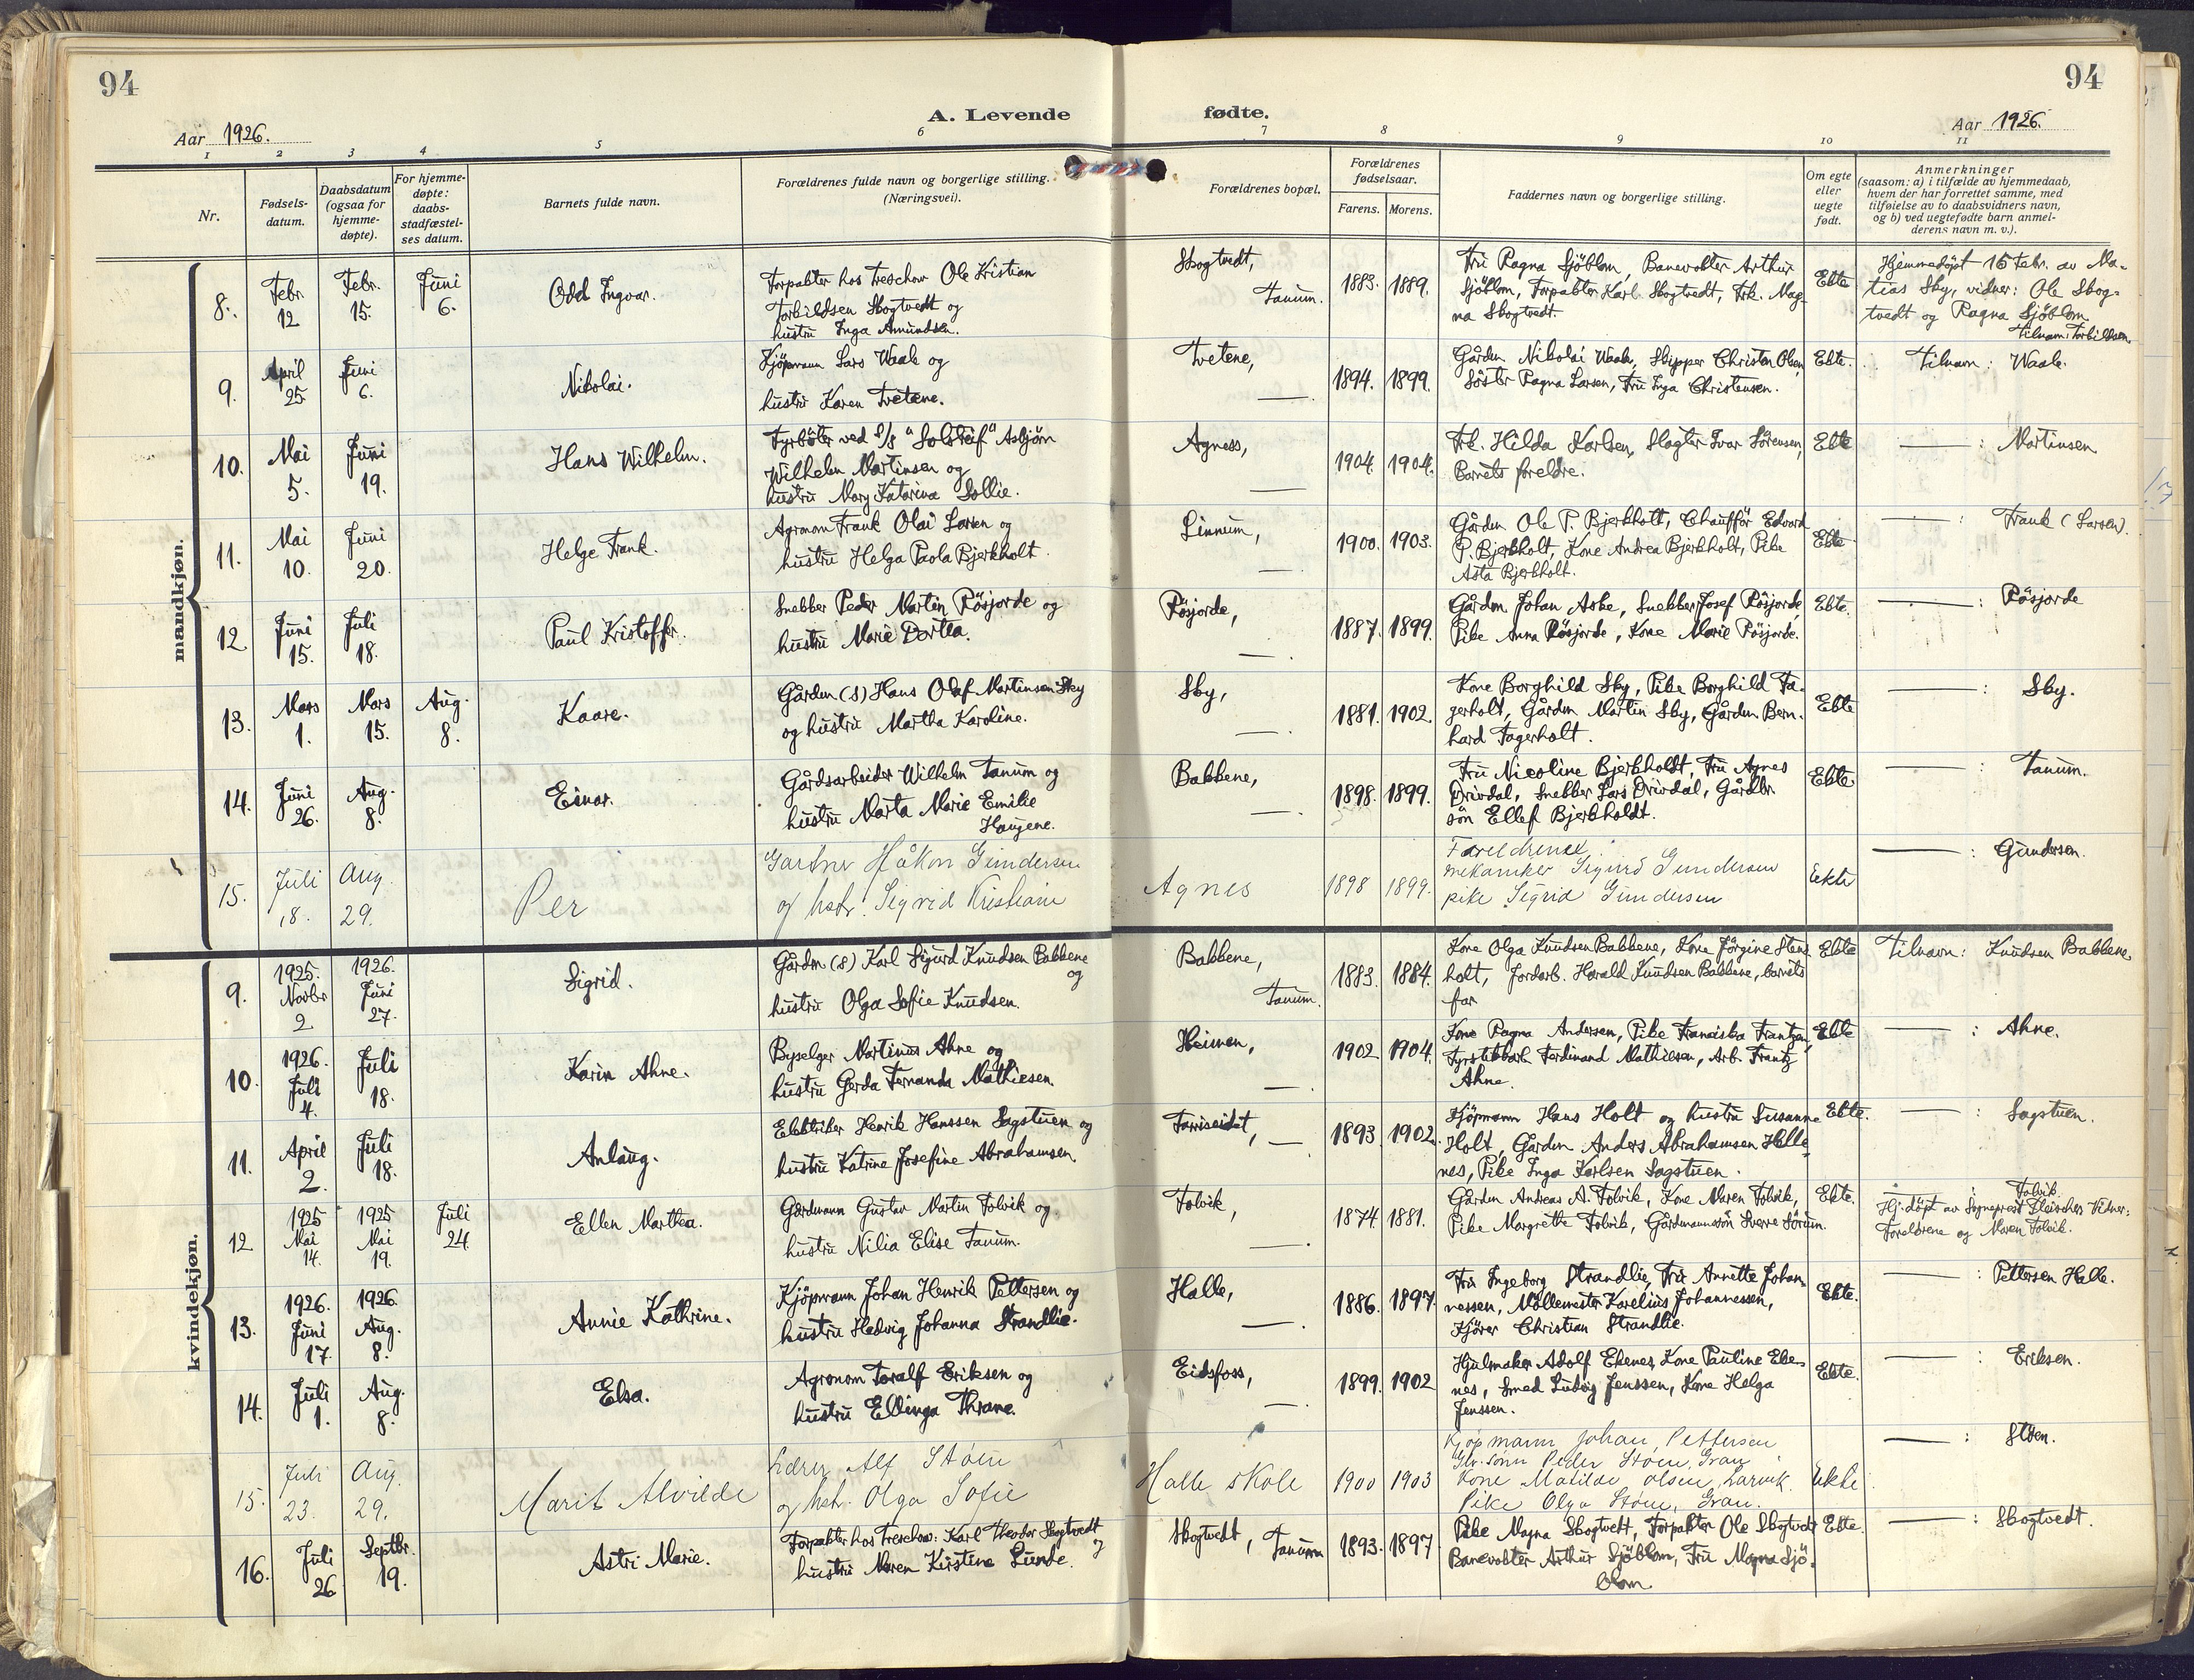 94
94
A. Levende fødte.
Aar 1926.
Aar 1926.
1 2 3 4 5 6 7 8 9 10 11
Nr.
Fødsels-
datum.
Daabsdatum
(ogsaa for
hjemme-
døpte).
For hjemme-
døpte:
daabs-
stadfæstel-
ses datum.
Barnets fulde navn.
Forældrenes fulde navn og borgerlige stilling.
(Næringsvei).
Forældrenes bopæl.
Forældrenes
fødselsaar.
Farens. Morens.
Faddernes navn og borgerlige stilling.
Om egte
eller
uegte
født.
Anmerkninger
(saasom: a) i tilfælde av hjemmedaab,
hvem der har forrettet samme, med
tilføielse av to daabsvidners navn,
og b) ved uegtefødte barn anmel-
derens navn m. v.).
mandkjøn.
8.
Febr.
12
Febr.
15.
Juni
6.
Odd Ingvar.
Forpakter hos Treschow Ole Kristian
Torkildsen Skogtvedt og
hustru Inga Amundsen.
Skogtvedt,
Tanum.
1883. 1889.
Fru Ragna Sjöblom, Banevokter Arthur
Sjöblom, Forpakter Karl Skogtvedt, Frk. Mag-
na Skogtvedt
Ekte
Hjemmedöpt 15 Febr. av Ma-
tias Sky, vidner: Ole Skog-
tvedt og Ragna Sjöblom
Tilnavn: Torkildsen.
9.
April
25
Juni
6.
Nikolai.
Kjöpmann Lars Waale og
hustru Karen Tvetene.
Tvetene,
—.
1894. 1899.
Gårdm Nikolai Waale, Skipper Christen Olsen,
Söster Ragna Larsen, Fru Inga Christensen.
Ekte.
Tilnavn: Waale.
10.
Mai
5.
Juni
19.
Hans Wilhelm.
Fyrböter ved S/S "Solstreif" Asbjörn
Wilhelm Martinsen og
hustru Mary Katarina Sollie.
Agness,
—
1904. 1904.
Frk. Hilda Karlsen, Slagter Ivar Sörensen,
Barnets foreldre.
Ekte
— : Martinsen
11.
Mai
10.
Juni
20.
Helge Frank.
Agronom Frank Olai Larsen og
hustru Helga Paola Bjerkholt.
Linnum,
—.
1900. 1903.
Gårdm Ole P. Bjerkholt, Chaufför Edvard
P. Bjerkholt, Kone Andrea Bjerkholt, Pike
Asta Bjerkholt.
Ekte
— : Frank (Larsen)
12.
Juni
15.
Juli
18.
Paul Kristoffer.
Snekker Peder Martin Rösjorde og
hustru Marie Dortea.
Rösjorde,
—.
1887. 1899.
Gårdm Johan Aske, Snekker Josef Rösjorde,
Pike Anna Rösjorde, Kone Marie Rösjorde.
Ekte.
— : Rösjorde
13.
Mars
1.
Mars
15.
Aug.
8.
Kaare.
Gårdm (S) Hans Olaf Martinsen Sky
og hustru Martha Karoline.
Sky,
—.
1881. 1902.
Kone Borghild Sky, Pike Borghild Fa-
gerholt, Gårdm Martin Sky, Gårdm Bern-
hard Fagerholt.
Ekte
— : Sky.
14.
Juni
26.
Aug.
8.
Einar.
Gårdsarbeider Wilhelm Tanum og
hustru Marta Marie Emilie
Haugene.
Bakkene,
—.
1898. 1899.
Fru Nicoline Bjerkholdt, Fru Agnes
Drivdal, Snekker Lars Drivdal, Gårdbr.
sön Ellef Bjerkholdt.
Ekte
— : Tanum.
15.
Juli
18.
Aug.
29.
Per
Gartner Håkon Gundersen
og hstr. Sigrid Kristiane
Agnes
1898 1899.
Foreldrene
mekaniker Sigurd Gundersen
pike Sigrid Gundersen
Eekte
— : Gundersen.
kvindekjøn.
9.
1925.
Novbr
2.
1926.
Juni
27.
Sigrid.
Gårdm (S) Karl Sigurd Knudsen Bakkene
og
hustru Olga Sofie Knudsen.
Bakkene,
Tanum.
1883. 1884.
Kone Olga Knudsen Bakkene, Kone Jörgine Stens-
holt, Jordarb. Harald Knudsen Bakkene, barnets
far
Ekte
Tilnavn: Knudsen Bakkene.
10.
1926.
Juli
4.
Juli
18.
Karin Ahne.
Byselger Martinus Ahne og
hustru Gerda Fernanda Mathiesen.
Heimen,
—.
1902 1904.
Kone Ragna Andersen, Pike Franciska Frantzen,
Ferdinand Mathiesen, Arb. Frantz
Ahne.
Ekte
— : Ahne.
11.
April
2.
Juli
18.
Anlaug.
Elektriker Henrik Hanssen Sagstuen og
hustru Katrine Josefine Abrahamsen.
Farriseidet, —.
1893. 1902.
Kjöpmann Hans Holt og hustru Susanne
Holt, Gårdm Anders Abrahamsen Halle-
nes, Pike Inga Karlsen Sagstuen.
Ekte.
— : Sagstuen.
12
1925
Mai
14.
1925
Mai
19.
Juli
24.
Ellen Marthea.
Gårdmann Gustav Martin Tolvik og
hustru Nilia Elise Tanum.
Tolvik,
—.
1874. 1881.
Gårdm Andreas A. Tolvik, Kone Maren Tolvik,
Pike Margrethe Tolvik, Gårdmannssön Sverre Sörum.
Ekte.
— : Tolvik.
Hj.döpt av Sogneprest Fleischer Vidner:
Foreldrene og Maren Tolvik.
13.
1926.
Juni
17.
1926.
Aug.
8.
Annie Kathrine.
Kjöpmann Johan Henrik Pettersen og
hustru Hedvig Johanna Strandlie.
Halle,
—.
1886. 1897.
Fru Ingeborg Strandlie, Fru Annette Johan-
nessen, Möllemester Karelius Johannessen,
Kjörer Christian Strandlie.
Ekte.
— : Pettersen Halle.
14.
Juli
1.
Aug.
8.
Elsa.
Agronom Toralf Eriksen og
hustru Ellinga Thrane.
Eidsfoss,
—.
1899. 1902
Hjulmaker Adolf Ekenes, Kone Pauline Eke-
nes, Smed Ludvig Jenssen, Kone Helga
Jenssen.
Ekte.
— : Eriksen.
15.
Juli
23.
Aug.
29.
Marit Alvilde
Lærer Alf Støen
og hstr. Olga Sofie
Halle skole
1900 1903
Kjøpmann Johan Pettersen
Gbr.sønn Peder Støen, Gran
Kone Matilde Olsen Larvik.
Pike Olga Støen, Gran.
Eekte
— : Stöen.
16.
Juli
26
Septbr.
19.
Astri Marie.
Forpakter hos Treschow: Karl Theodor Skogtvedt
og
hustru Maren Kirstine Lunde.
Skogtvedt, Tanum
1893. 1897
Pike Magna Skogtvedt, Forpakter Ole Skogtvedt
Banevokter Arthur Sjöblom, Fru Magna Sjö-
blom.
Ekte.
— : Skogtvedt.